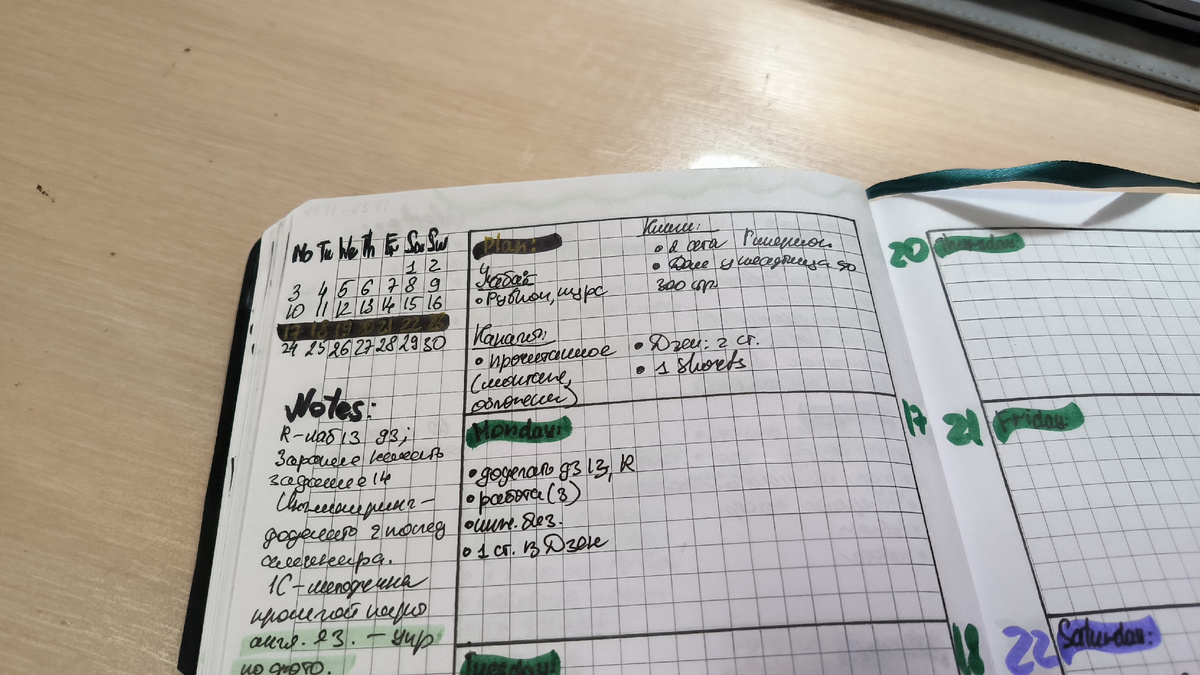 Mo Tu We Th Fr Sa Su
1 2
3 4 5 6 7 8 9
10 11 12 13 14 15 16
17 18 19 20 21 22 23
24 25 26 27 28 29 30
Notes:
R-лаб 13 дз;
задание 14
доделать 2 послед
семинара.
1С-методичка
англ. яз. - упр
по фото.
Plan:
Учёба:
• Рубион, курс
Каналы:
• прочитанное
(монтаж,
обложки)
Книги:
• 2
• до
300 стр
• Дзен: 2 ст.
• 1 Shorts
Monday:
• доделать дз 13, R
• работа (3)
• инж. без.
• 1 ст. в Дзен
17
Tuesday:
18
20 Thursday:
21 Friday:
22 Saturday: